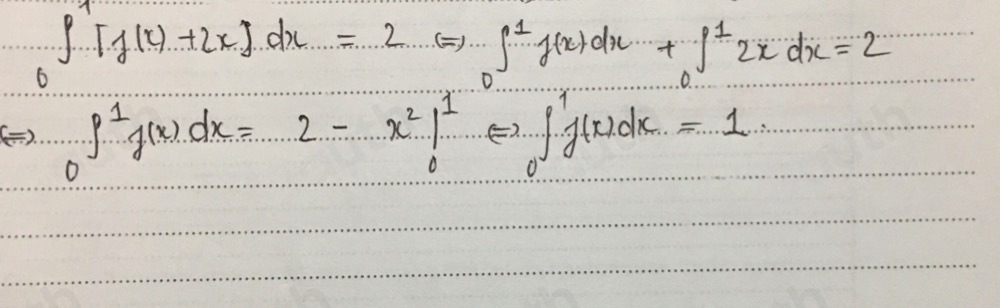 ∫₀¹ [f(x) + 2x] dx = 2 ⇔ ∫₀¹ f(x) dx + ∫₀¹ 2x dx = 2
⇔ ∫₀¹ f(x) dx = 2 - x² |₀¹ ⇔ ∫₀¹ f(x) dx = 1.